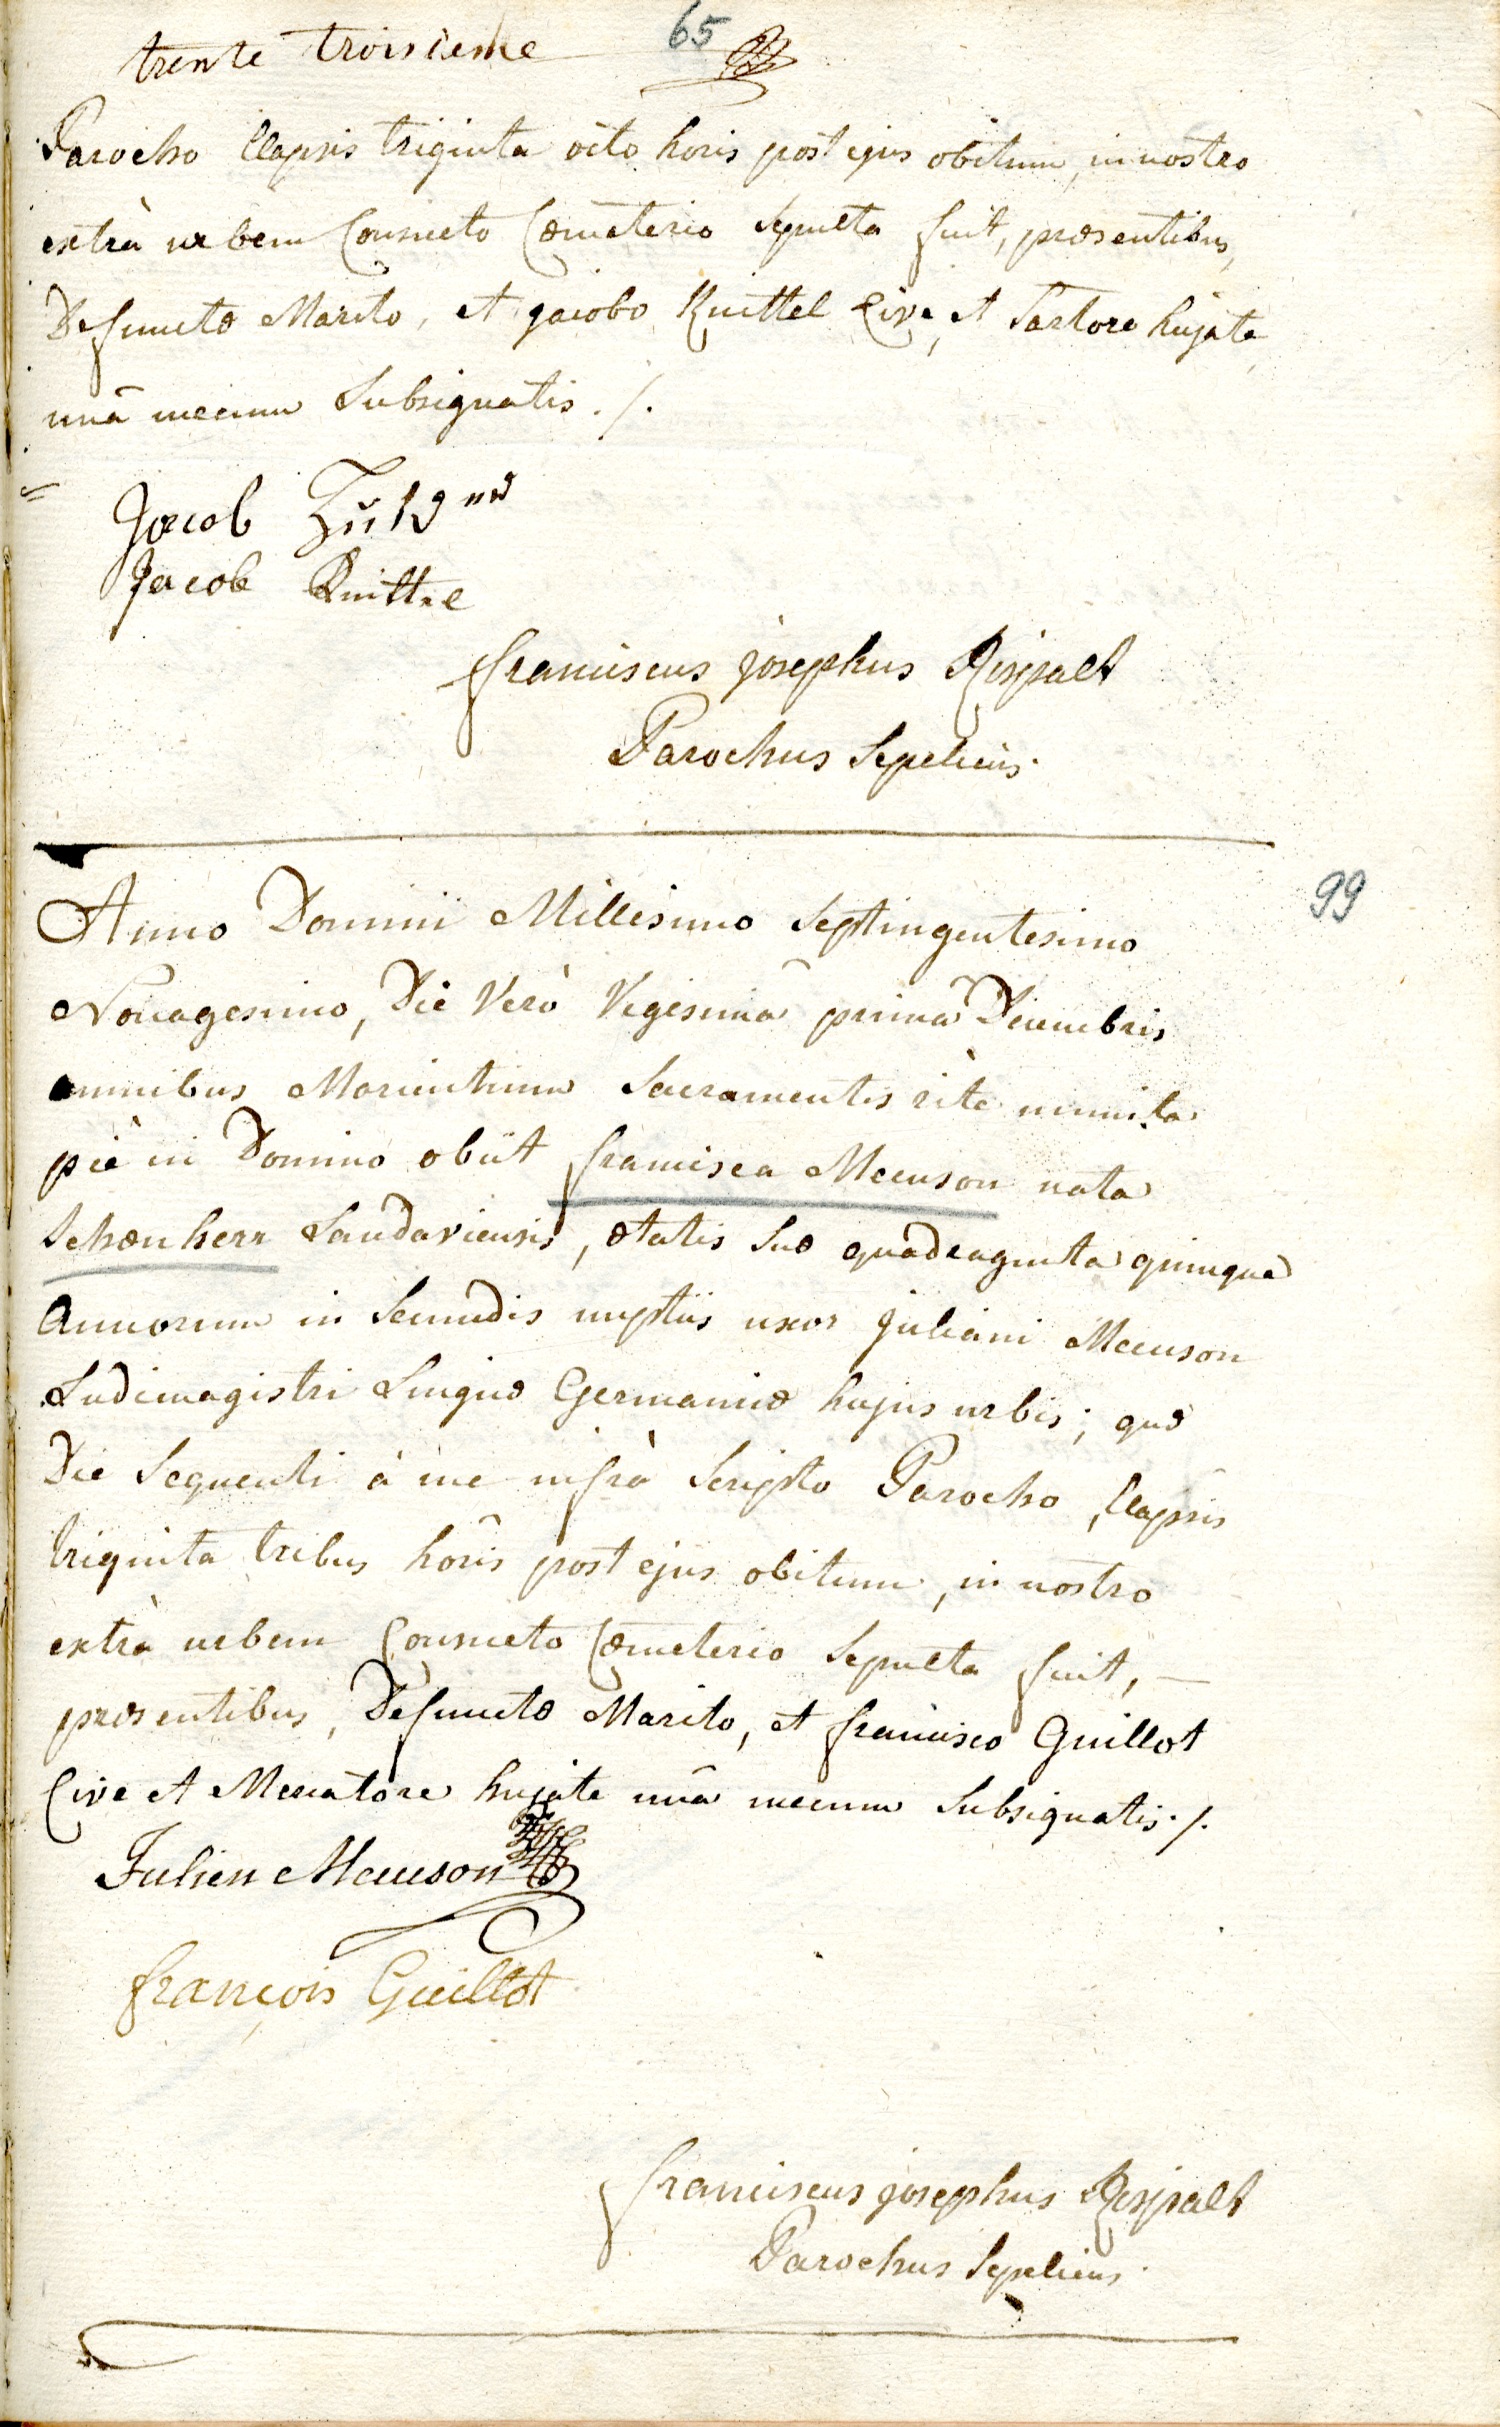 trente troisieme 65
Parocho Elapsis triginta octo horis post ejus obitum, in nostro
extrà urbem Consueto Cœmeterio Sepulta fuit, præsentibus,
Defunctæ Marito, et jacobo Knittel Cive, et Sartore hujate
unâ mecum Subsignatis ./.
Jacob
Jacob Knittel
franciscus josephus Rispalt
Parochus Sepeliens.
99
Anno Domini Millesimo Septingentesimo
Nonagesimo, Die Verò Vigesimâ primâ Decembris
omnibus Morientium Sacramentis ritè munita
piè in Domino obiit francisca Meuson nata
Schœnherr Landaviensis, ætatis Suæ quadraginta quinque
Annorum in Secundis nuptiis uxor juliani Meuson
Ludimagistri Linguæ Germanicæ hujus urbis; quæ
Die Sequenti à me infrà Scripto Parocho, Elapsis
triginta tribus horis post ejus obitum, in nostro
extrà urbem Consueto Cœmeterio Sepulta fuit, —
præsentibus, Defunctæ Marito, et francisco Guillot
Cive et Mercatore hujate unâ mecum Subsignatis ./.
Julien Meuson
françois Guillot
franciscus josephus Rispalt
Parochus Sepeliens.